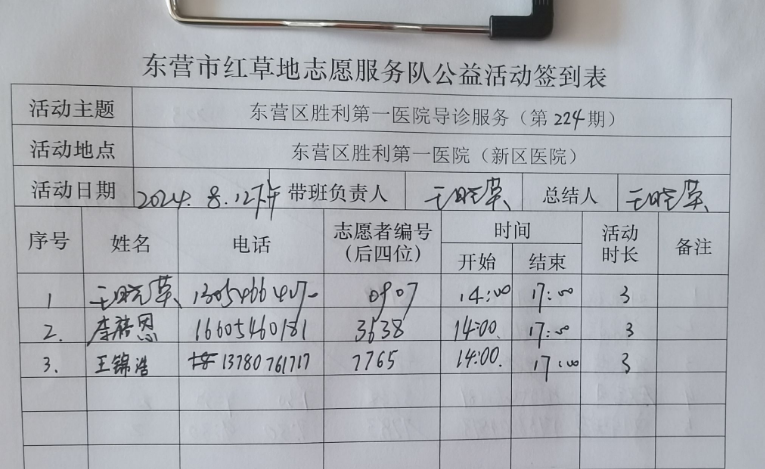 东营市红草地志愿服务队公益活动签到表
活动主题 东营区胜利第一医院导诊服务（第224期）
活动地点 东营区胜利第一医院（新区医院）
活动日期 2024.8.12下午 带班负责人 王晓英 总结人 王晓英
序号 姓名 电话 志愿者编号（后四位） 时间 开始 结束 活动时长 备注
1 王晓英 0907 14:00 17:00 3
2. 李禧恩 16605460181 3638 14:00. 17:00 3
3. 王锦浩 13780761717 7765 14:00. 17:00 3